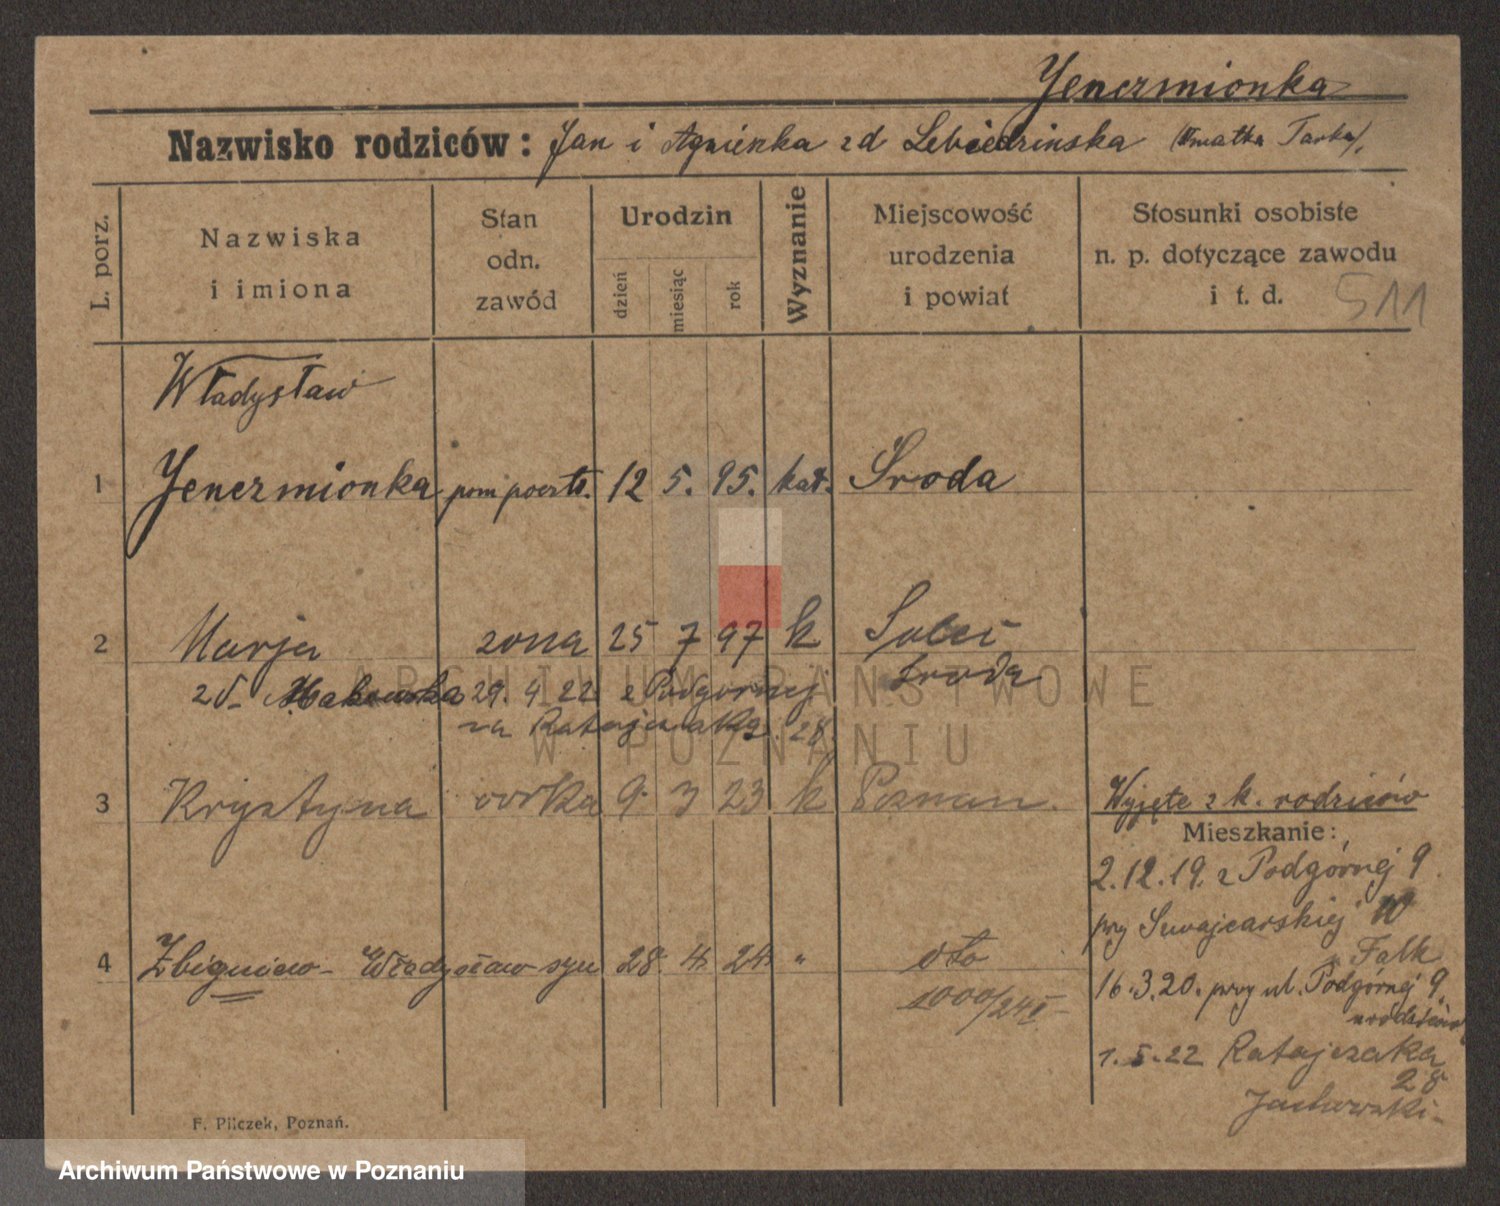 Jenczmionka
Nazwisko rodziców: Jan i Agnieszka zd Lebiedzinska
L. porz.
Nazwiska
i imiona
Stan
odn.
zawód
Urodzin
dzień
miesiąc
rok
Wyznanie
Miejscowość
urodzenia
i powiat
Stosunki osobiste
n. p. dotyczące zawodu
i t. d.
511
Władysław
1 Jenczmionka pom poczt. 12 5. 95. kat. Sroda
2 Marja zona 25 7 97 k Solec
zd. Makowska 29. 4 22 z Podgornej Sroda
na Ratajczaka 28
3 Krystyna corka 9. 3 23 k Poznan.
Wyjęte z k. rodziców
Mieszkanie:
2.12.19. z Podgórnej 9.
przy Szwajcarskiej 10
4 Zbigniew - Władysław syn 28. 4. 24. " oto
u Falk
1000/24
16.3.20. przy ul. Podgórnej 9.
u rodziców
1.5.22 Ratajczaka
28
F. Pilczek, Poznań.
ARCHIWUM PAŃSTWOWE
W POZNANIU
Archiwum Państwowe w Poznaniu